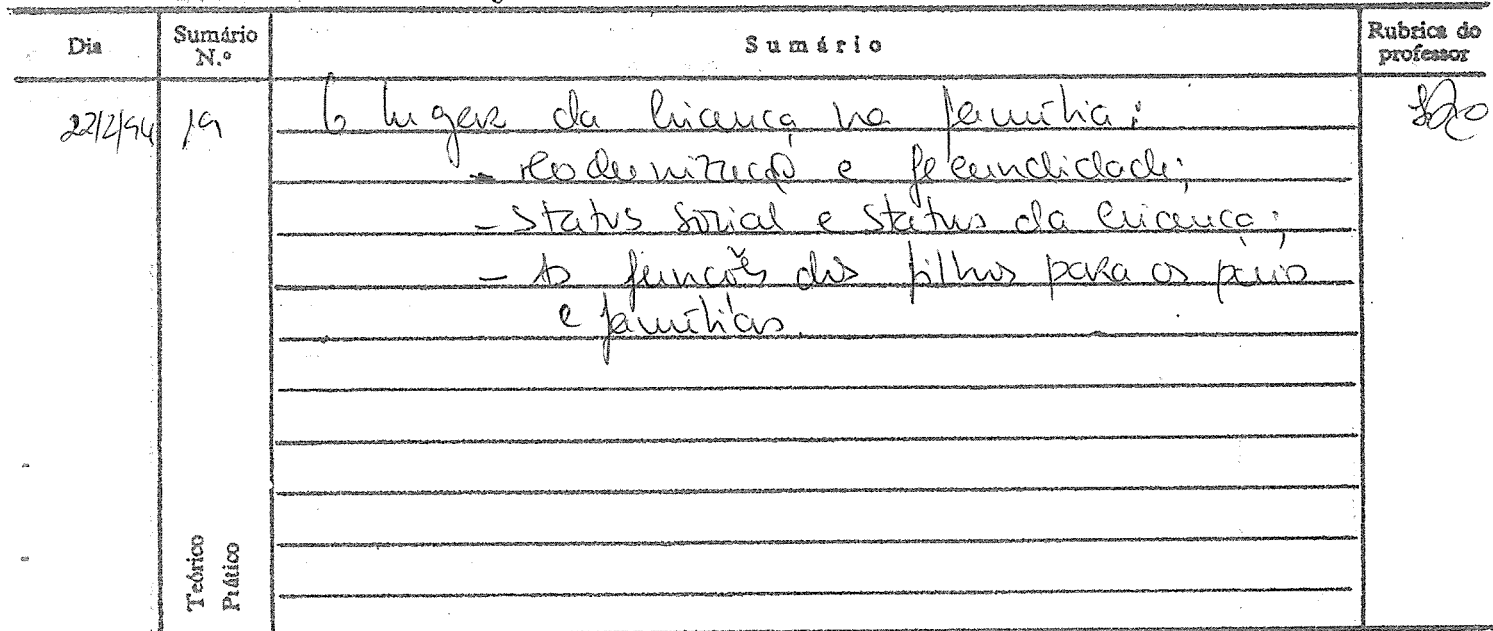 Dia Sumário N.º Sumário Rubrica do professor
22/2/94 19 O lugar da criança na família:
- Modernização e fecundidade;
- Status social e status da criança;
- As funções dos filhos para os pais
e famílias.
Teórico
Prático